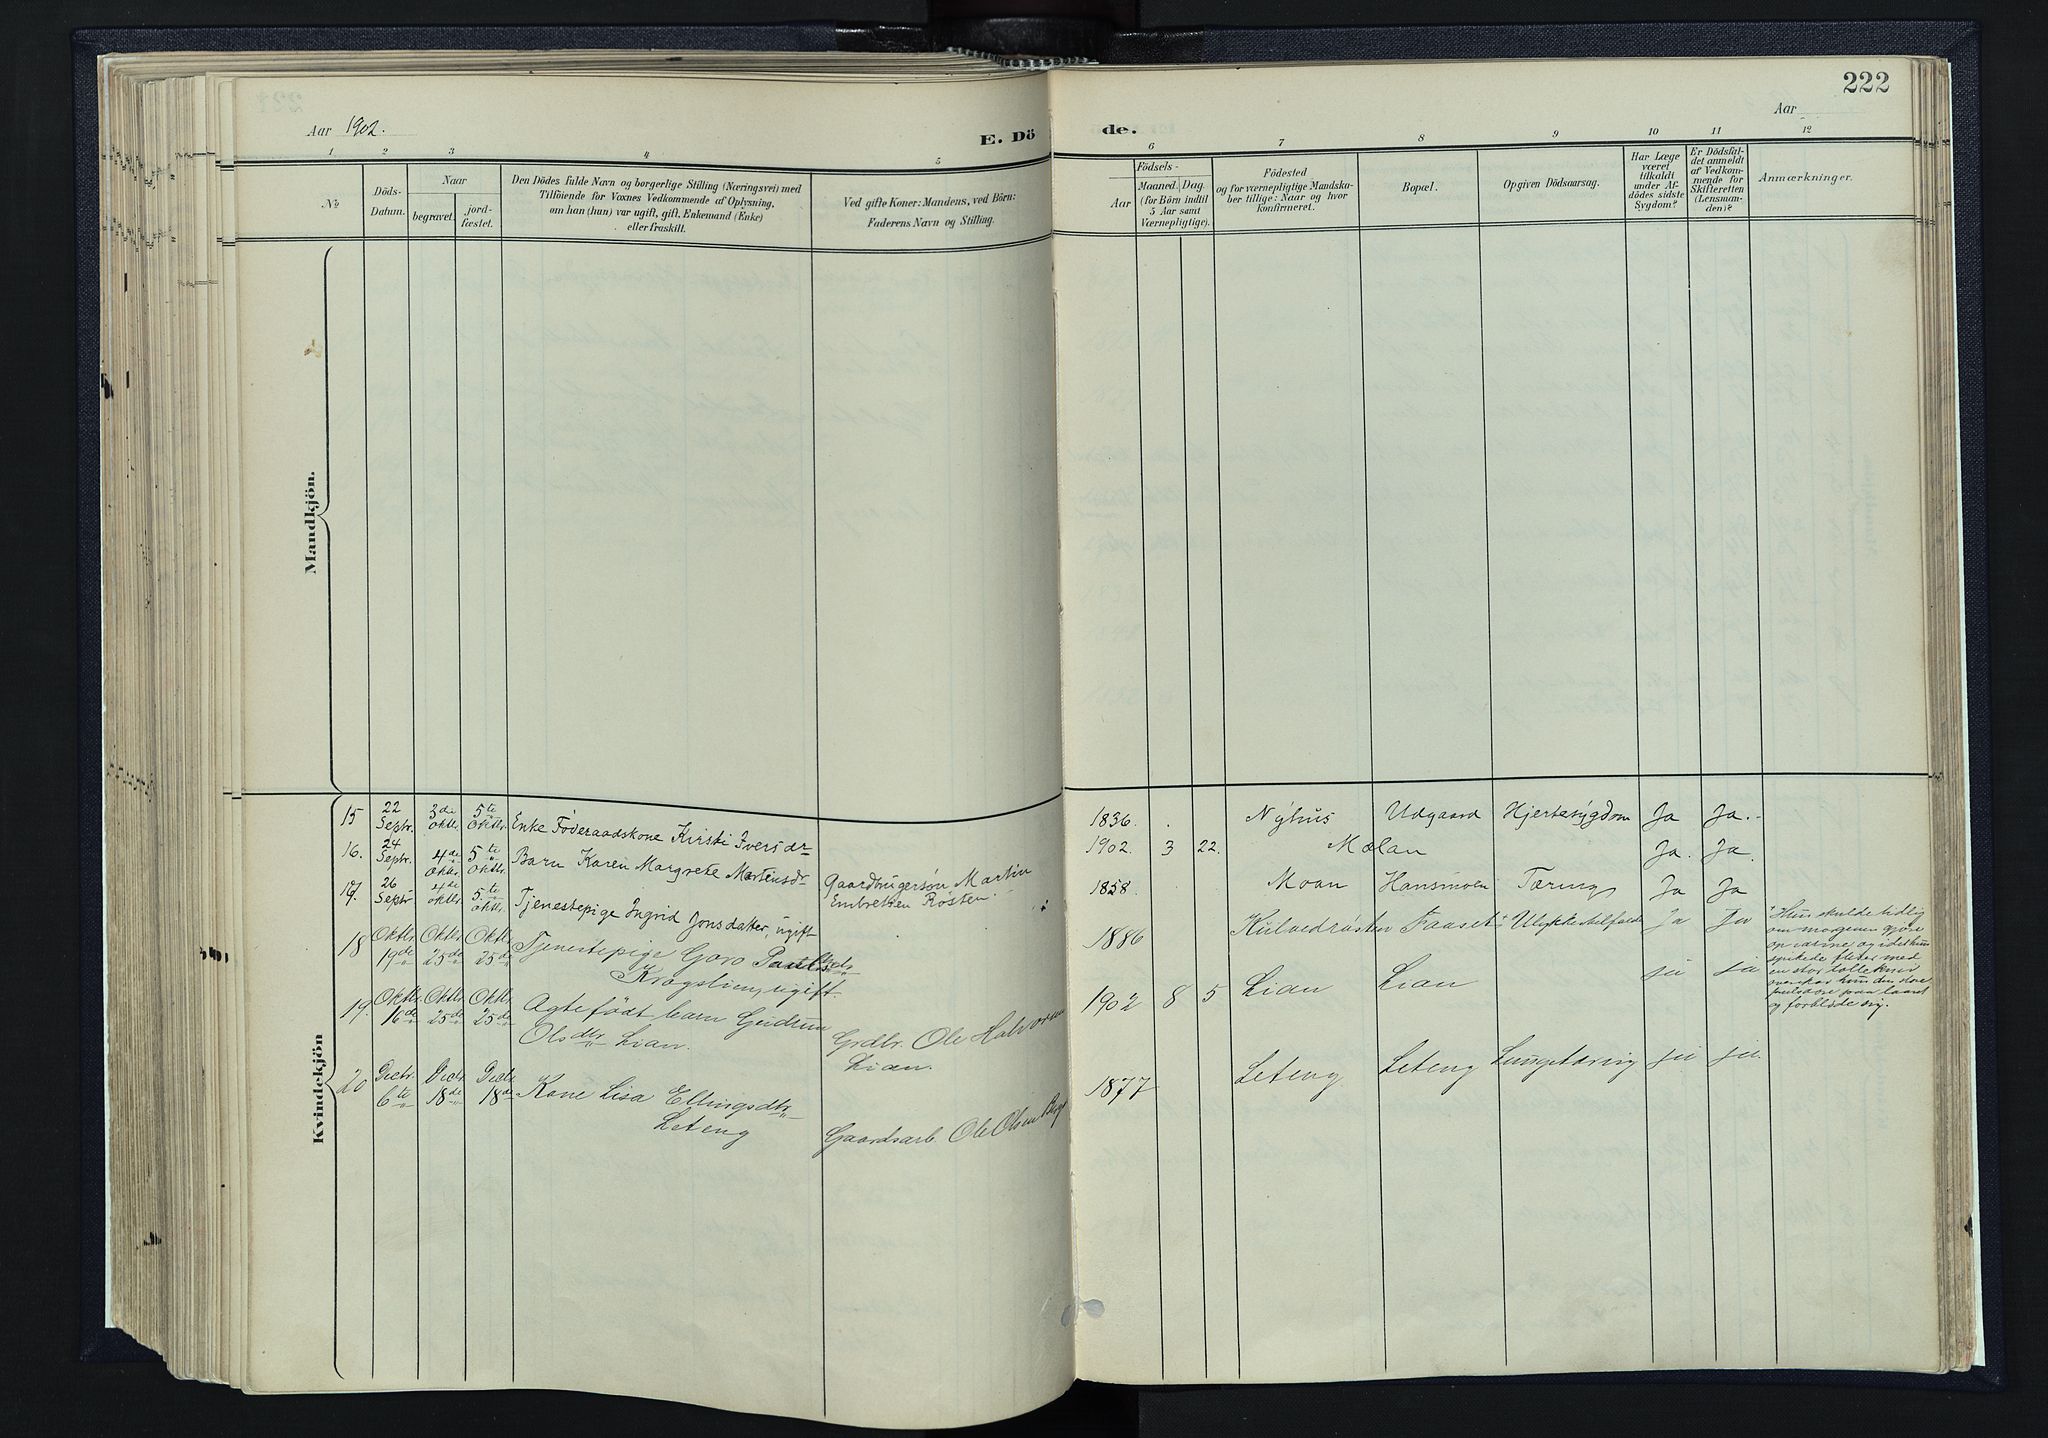 222
Aar 1902.
Aar
E. Dö de.
1 2 3 4 5 6 7 8 9 10 11 12
No
Döds-
Datum.
Naar
begravet.
jord-
fæstet.
Den Dödes fulde Navn og borgerlige Stilling (Næringsvei) med
Tilföiende for Voxnes Vedkommende af Oplysning,
om han (hun) var ugift, gift, Enkemand (Enke)
eller fraskilt.
Ved gifte Koner: Mandens, ved Börn:
Faderens Navn og Stilling.
Födsels-
Aar
Maaned. Dag.
(for Börn indtil
5 Aar samt
Værnepligtige).
Födested
og for værnepligtige Mandska-
ber tillige: Naar og hvor
konfirmeret.
Bopæl.
Opgiven Dödsaarsag.
Har Læge
været
tilkaldt
under Af-
dödes sidste
Sygdom?
Er Dödsfal-
det anmeldt
af Vedkom-
mende for
Skifteretten
(Lensman-
den)?
Anmærkninger.
Mandkjön.
Kvindekjön
15 22 Septr. 3de Oktbr. 5te Oktbr. Enke Föderaadskone Kirsti Iversdr 1836. Nyhus Udgaard Hjertesygdom Ja Ja.
16. 24 Septr. 4de Oktbr. 5te Oktbr. Barn Karen Margrete Martensdr Gaardbrugersøn Martin
Embretsen Rosten 1902. 3 22. Mælan Ja. Ja.
17. 26 Septr 4de Oktbr 5te Oktbr. Tjenestepige Ingrid Jonsdatter, ugift 1858 Moan Hansmoen Tæring Ja Ja
18 Oktbr. 19de Oktbr. 25de Oktbr. 25de Tjenestepige Goro Paulsdtr
Krogslien, ugift. 1886 Faaset Ulykkestilfælde Ja Ja
Hun skulde tidlig
om morgenen gjøre
op varme, og idet hun
spikede fliser med
en stor tollekniv
overskar hun den store
pulsåre paa laaret
og forblødte sig.
19. Oktbr. 16de Oktbr. 25de Oktbr. 25de Ægtefödt barn Gudrun
Olsdtr Lian. Grdbr. Ole Halvorsen
Lian. 1902 8 5 Lian Lian ja ja
20 Decbr. 6te Decbr. 18de Decbr. 18de Kone Lisa Ellingsdtr
Leteng Gaardsarb. Ole Olsen Berg 1877 Leteng Leteng Lungetæring ja ja.